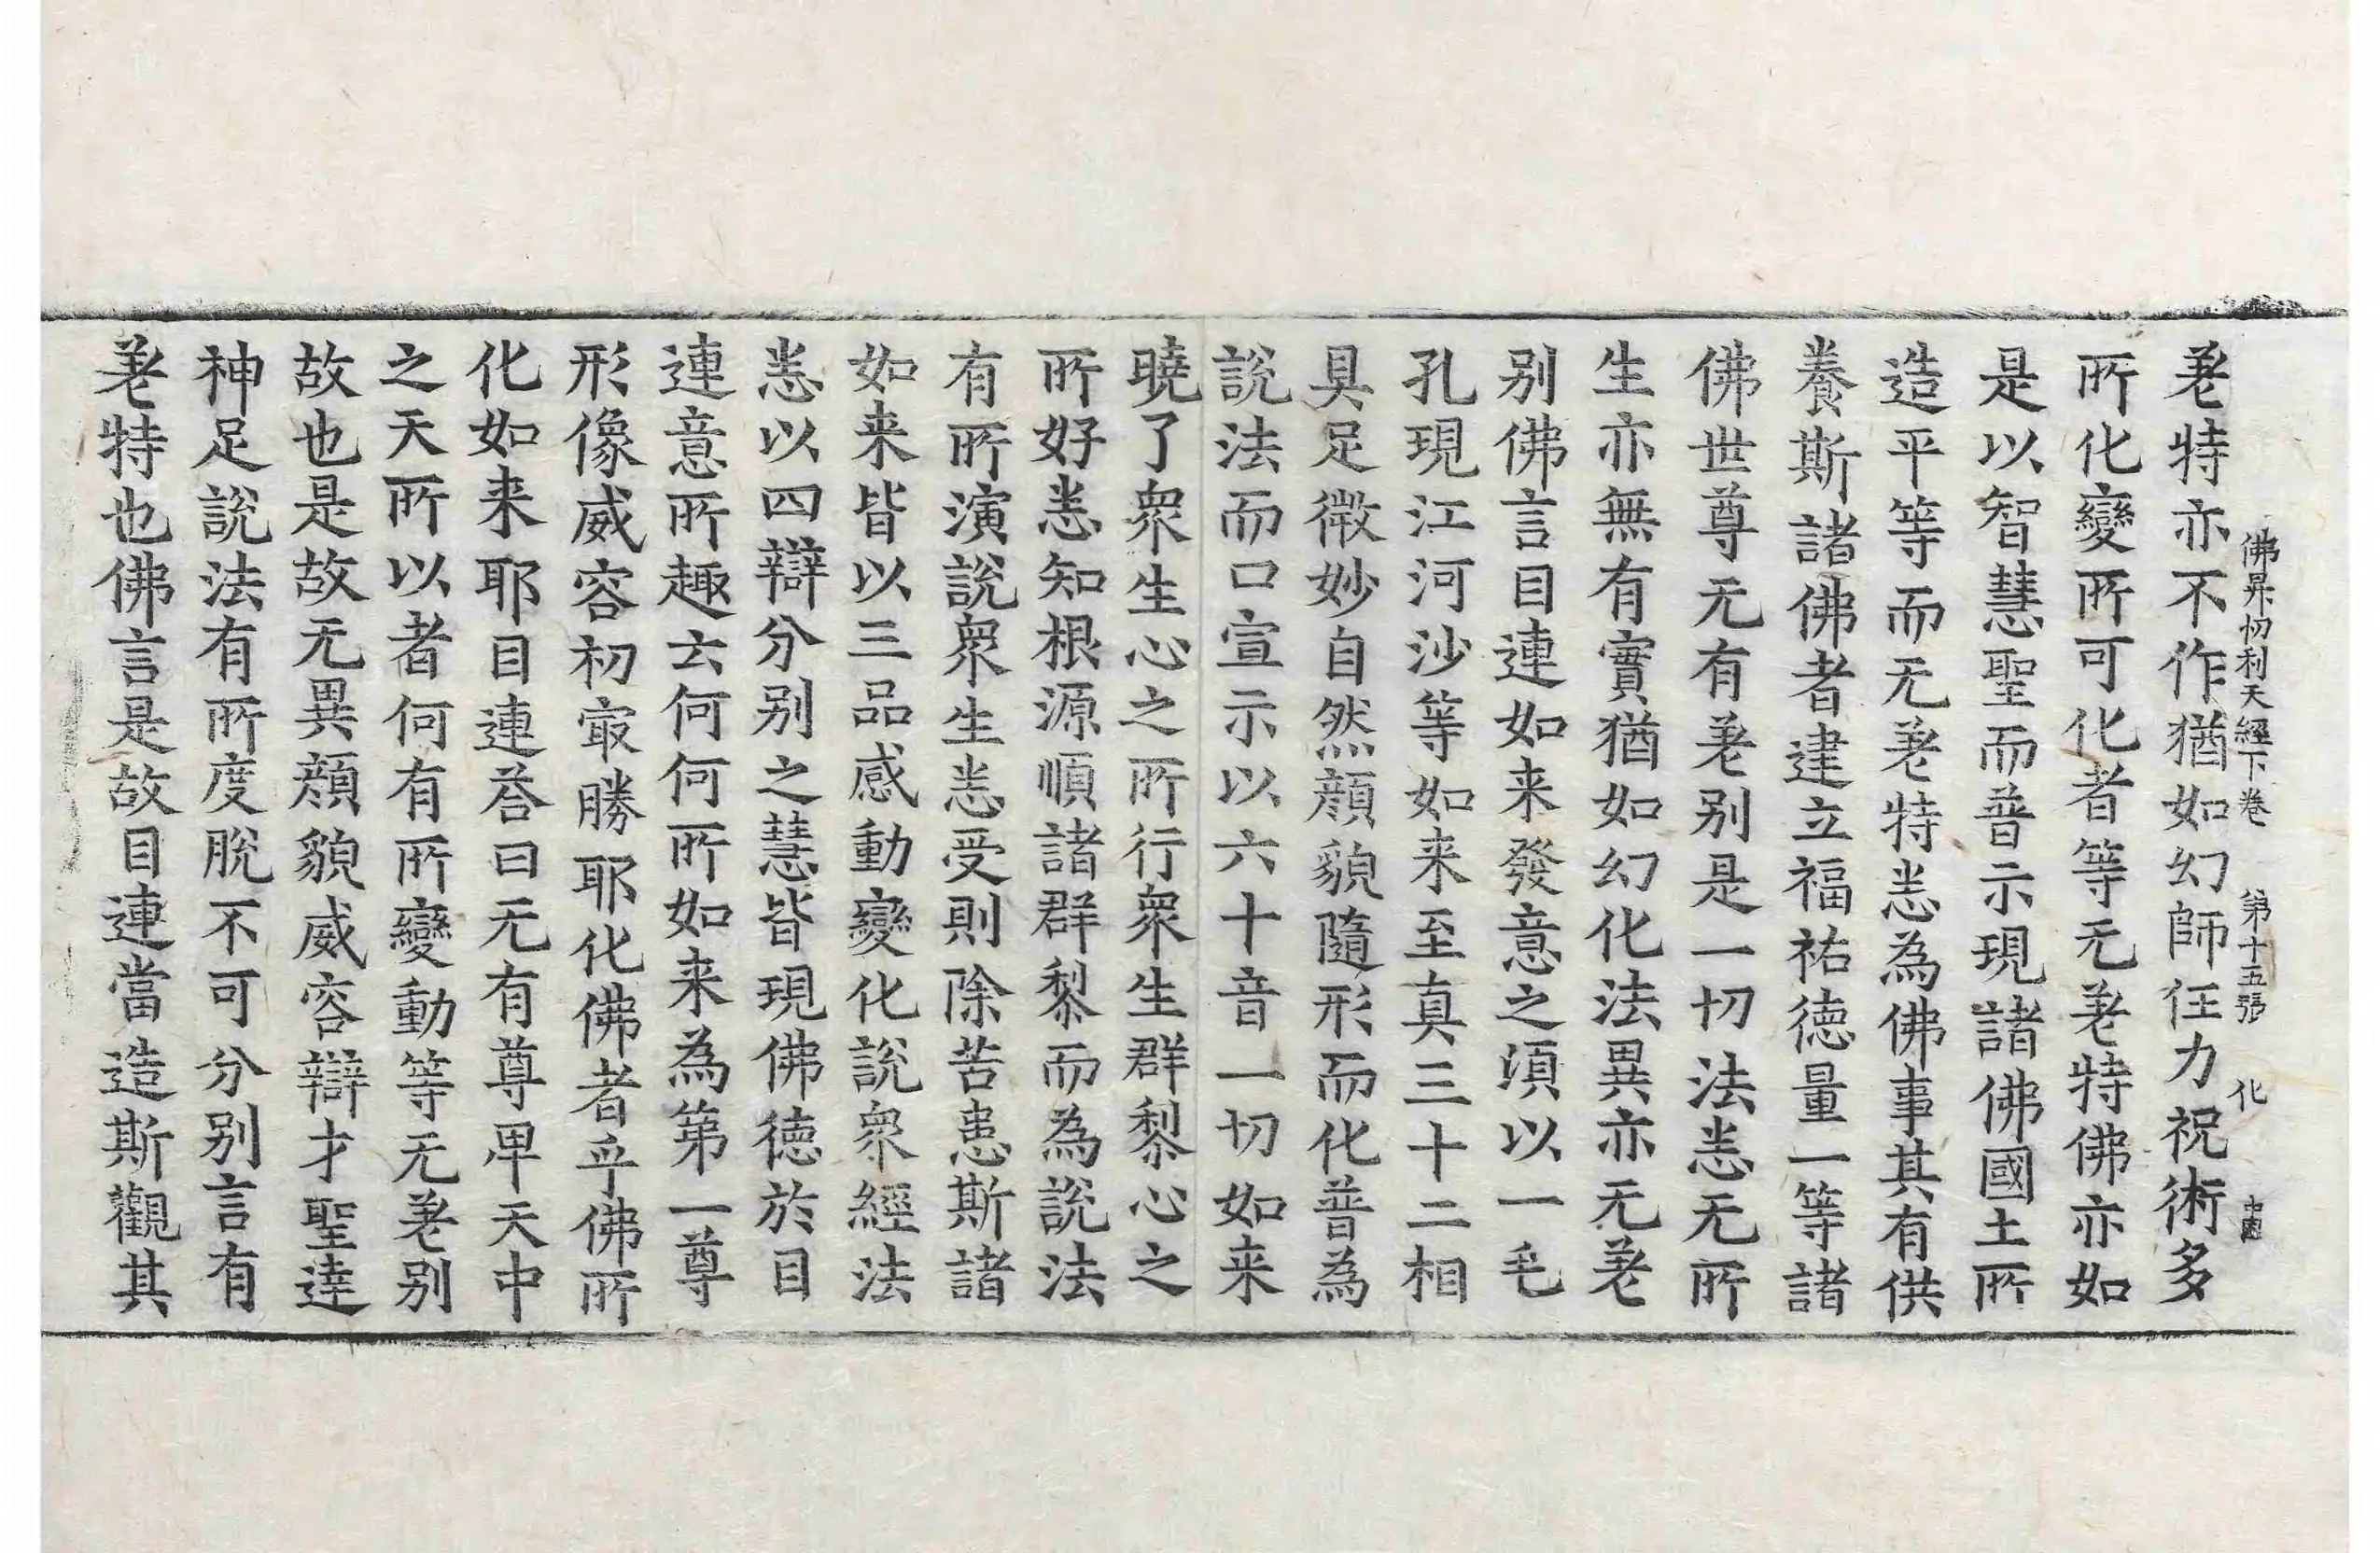 佛昇忉利天經下卷　第十五張　化
差特亦不作猶如幻師任力祝術多
所化變所可化者等无差特佛亦如
是以智慧聖而普示現諸佛國土所
造平等而无差特悉為佛事其有供
養斯諸佛者建立福祐德量一等諸
佛世尊无有差别是一切法悉无所
生亦無有實猶如幻化法異亦无差
别佛言目連如来發意之頃以一毛
孔現江河沙等如来至真三十二相
具足微妙自然顔貌隨形而化普為
說法而口宣示以六十音一切如来
曉了衆生心之所行衆生群黎心之
所好悉知根源順諸群黎而為說法
有所演說衆生悉受則除苦患斯諸
如来皆以三品感動變化說衆經法
悉以四辯分别之慧皆現佛德於目
連意所趣云何何所如来為第一尊
形像威容初㝡勝耶化佛者乎佛所
化如来耶目連荅曰无有尊卑天中
之天所以者何有所變動等无差别
故也是故无異顔貌威容辯才聖達
神足說法有所度脫不可分别言有
差特也佛言是故目連當造斯觀其